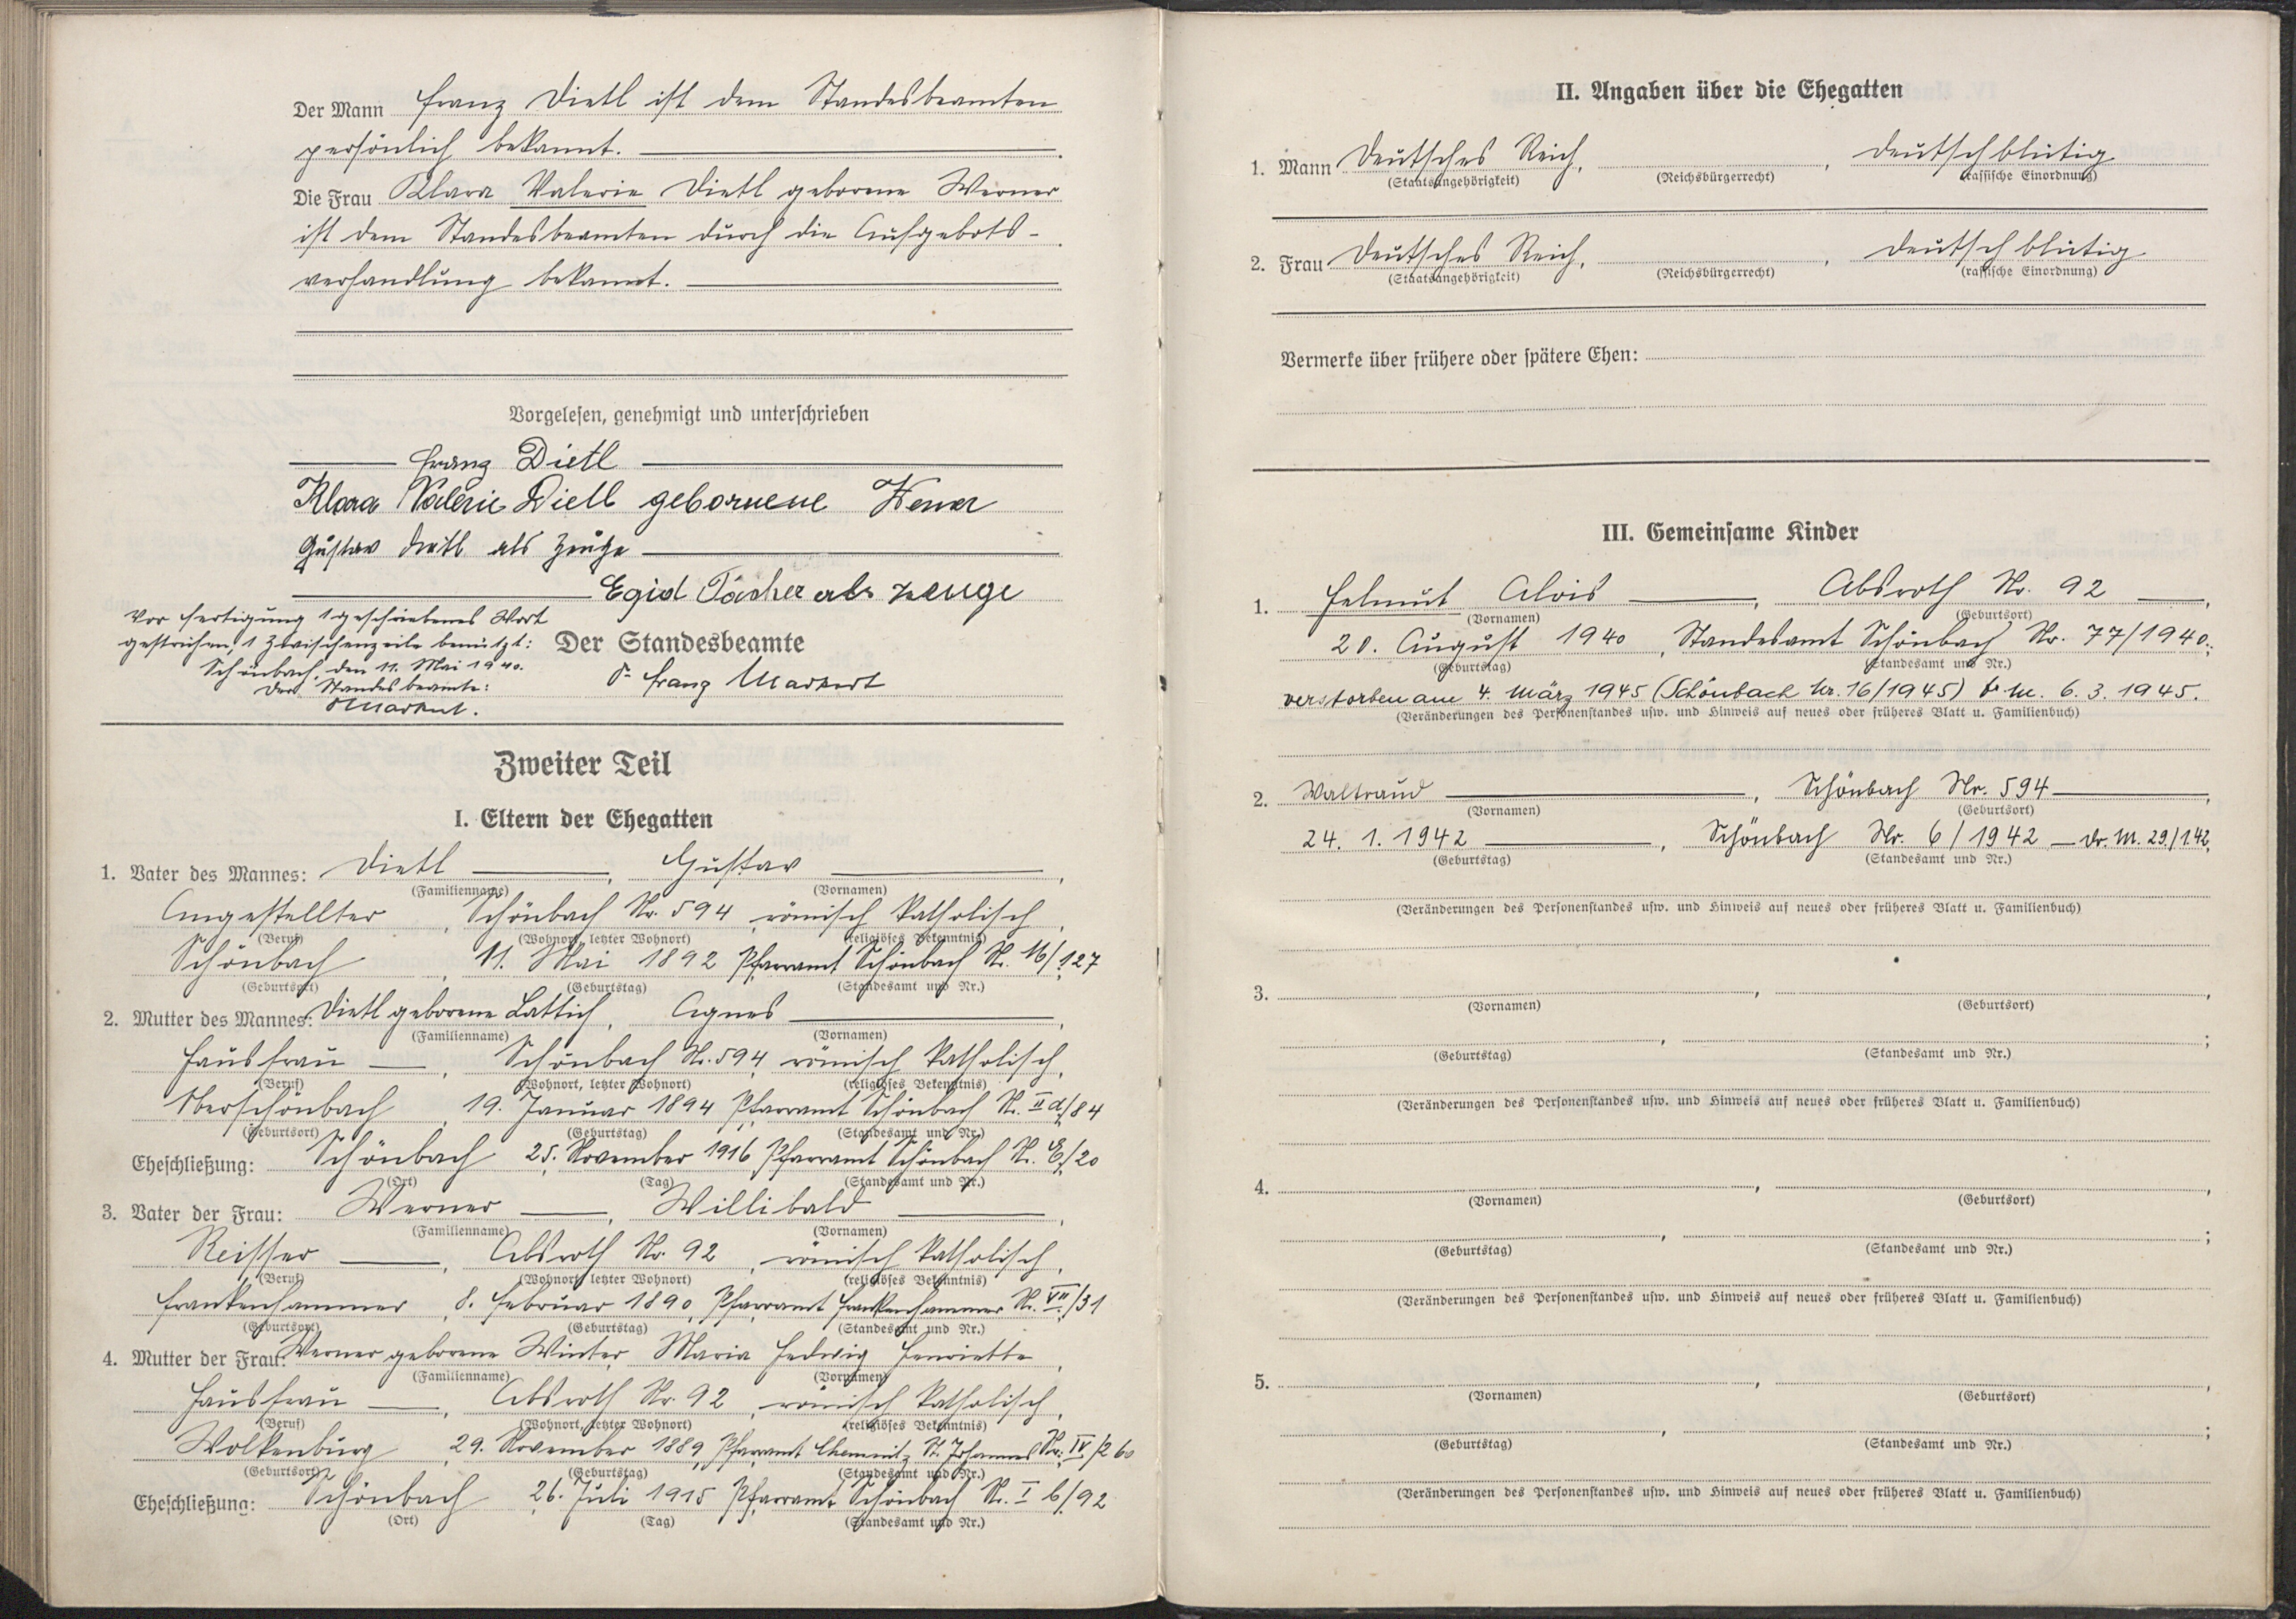 Der Mann Franz Dietl ist dem Standesbeamten
persönlich bekannt.
Die Frau Klara Valerie Dietl geborene Werner
ist dem Standesbeamten durch die Aufgebots-
verhandlung bekannt.
Vorgelesen, genehmigt und unterschrieben
Franz Dietl
Klara Valerie Dietl geborene Werner
Gustav Dietl als Zeuge
Egid als Zeuge
Vor Fertigung 1 geschriebenes Wort
gestrichen, 1 Zwischenzeile benützt:
Schönbach, den 11. Mai 1940.
Der Standesbeamte:
Markert.
Der Standesbeamte
Franz Markert
Zweiter Teil
I. Eltern der Ehegatten
1. Vater des Mannes: Dietl, Gustav,
(Familienname) (Vornamen)
Angestellter, Schönbach Nr. 594, römisch katholisch,
(Beruf) (Wohnort, letzter Wohnort) (religiöses Bekenntnis)
Schönbach, 11. Mai 1892 Pfarramt Schönbach Nr. 16/127
(Geburtsort) (Geburtstag) (Standesamt und Nr.)
2. Mutter des Mannes: Dietl geborene Lattich, Agnes,
(Familienname) (Vornamen)
Hausfrau, Schönbach Nr. 594, römisch katholisch,
(Beruf) (Wohnort, letzter Wohnort) (religiöses Bekenntnis)
Oberschönbach, 19. Januar 1894, Pfarramt Schönbach Nr. II a/84
(Geburtsort) (Geburtstag) (Standesamt und Nr.)
Eheschließung: Schönbach 25. November 1916 Pfarramt Schönbach Nr. E/20
(Ort) (Tag) (Standesamt und Nr.)
3. Vater der Frau: Werner, Willibald,
(Familienname) (Vornamen)
Absroth Nr. 92, römisch katholisch,
(Beruf) (Wohnort, letzter Wohnort) (religiöses Bekenntnis)
Frankenhammer, 8. Februar 1890, Pfarramt Frankenhammer Nr. VII/31
(Geburtsort) (Geburtstag) (Standesamt und Nr.)
4. Mutter der Frau: Werner geborene Winter, Maria Hedwig Henriette,
(Familienname) (Vornamen)
Hausfrau, Absroth Nr. 92, römisch katholisch,
(Beruf) (Wohnort, letzter Wohnort) (religiöses Bekenntnis)
Wolkenburg, 29. November 1889, Pfarramt Chemnitz St. Johannes Nr. IV/260
(Geburtsort) (Geburtstag) (Standesamt und Nr.)
Eheschließung: Schönbach 26. Juli 1915 Pfarramt Schönbach Nr. I b/92
(Ort) (Tag) (Standesamt und Nr.)
II. Angaben über die Ehegatten
1. Mann Deutsches Reich, , deutschblütig
(Staatsangehörigkeit) (Reichsbürgerrecht) (rassische Einordnung)
2. Frau Deutsches Reich, , deutschblütig
(Staatsangehörigkeit) (Reichsbürgerrecht) (rassische Einordnung)
Vermerke über frühere oder spätere Ehen:
III. Gemeinsame Kinder
1. Helmut Alois, Absroth Nr. 92,
(Vornamen) (Geburtsort)
20. August 1940, Standesamt Schönbach Nr. 77/1940;
(Geburtstag) (Standesamt und Nr.)
verstorben am 4. März 1945 (Schönbach Nr. 16/1945) 6. 3. 1945.
(Veränderungen des Personenstandes usw. und Hinweis auf neues oder früheres Blatt u. Familienbuch)
2. Waltraud, Schönbach Nr. 594,
(Vornamen) (Geburtsort)
24. 1. 1942, Schönbach Nr. 6/1942 — Dr. M. 29./1.42,
(Geburtstag) (Standesamt und Nr.)
(Veränderungen des Personenstandes usw. und Hinweis auf neues oder früheres Blatt u. Familienbuch)
3. , ,
(Vornamen) (Geburtsort)
, ;
(Geburtstag) (Standesamt und Nr.)
(Veränderungen des Personenstandes usw. und Hinweis auf neues oder früheres Blatt u. Familienbuch)
4. , ,
(Vornamen) (Geburtsort)
, ;
(Geburtstag) (Standesamt und Nr.)
(Veränderungen des Personenstandes usw. und Hinweis auf neues oder früheres Blatt u. Familienbuch)
5. , ,
(Vornamen) (Geburtsort)
, ;
(Geburtstag) (Standesamt und Nr.)
(Veränderungen des Personenstandes usw. und Hinweis auf neues oder früheres Blatt u. Familienbuch)